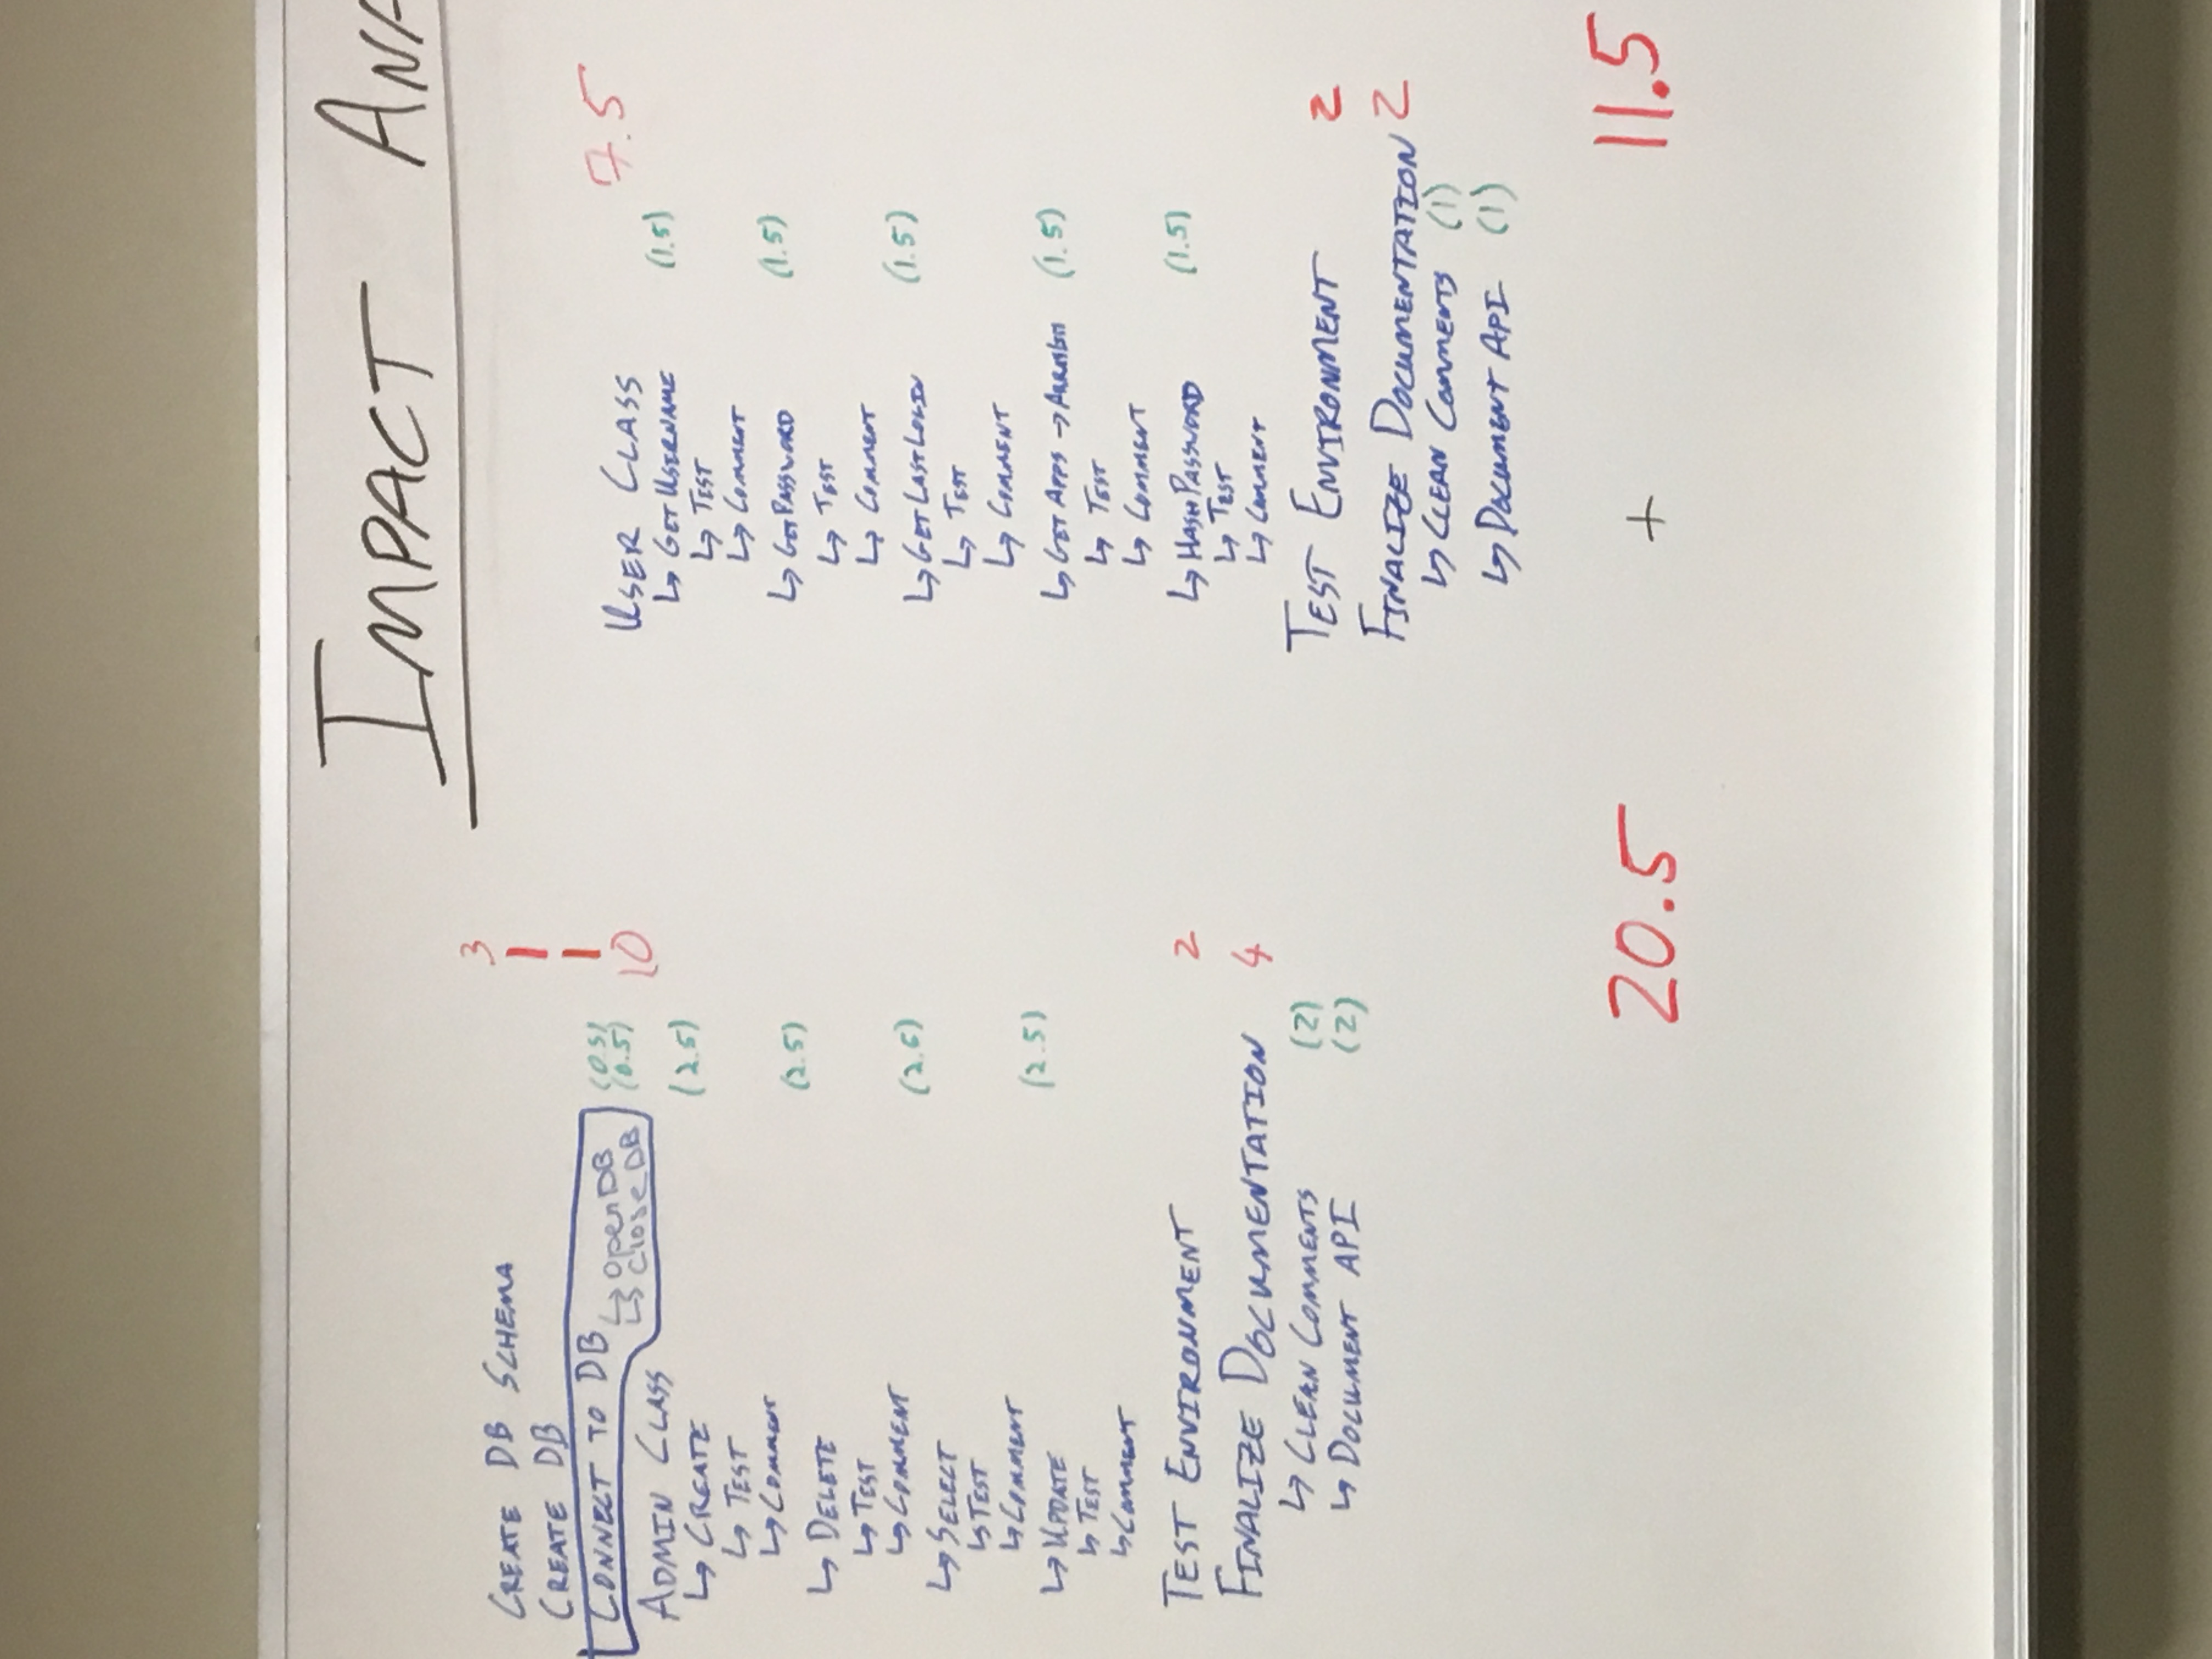 IMPACT ANA
3
CREATE DB SCHEMA
1
CREATE DB
1
CONNECT TO DB
↳ OpenDB (0.5)
↳ CloseDB (0.5)
10
ADMIN CLASS
↳ CREATE (2.5)
↳ TEST
↳ COMMENT
↳ DELETE (2.5)
↳ TEST
↳ COMMENT
↳ SELECT (2.5)
↳ TEST
↳ COMMENT
↳ UPDATE (2.5)
↳ TEST
↳ COMMENT
TEST ENVIRONMENT 2
FINALIZE DOCUMENTATION 4
↳ CLEAN COMMENTS (2)
↳ DOCUMENT API (2)
20.5
USER CLASS 7.5
↳ GETUSERNAME (1.5)
↳ TEST
↳ COMMENT
↳ GETPASSWORD (1.5)
↳ TEST
↳ COMMENT
↳ GETLASTLOGIN (1.5)
↳ TEST
↳ COMMENT
↳ GET APPS → (1.5)
↳ TEST
↳ COMMENT
↳ HASHPASSWORD (1.5)
↳ TEST
↳ COMMENT
TEST ENVIRONMENT 2
FINALIZE DOCUMENTATION 2
↳ CLEAN COMMENTS (1)
↳ DOCUMENT API (1)
+ 11.5